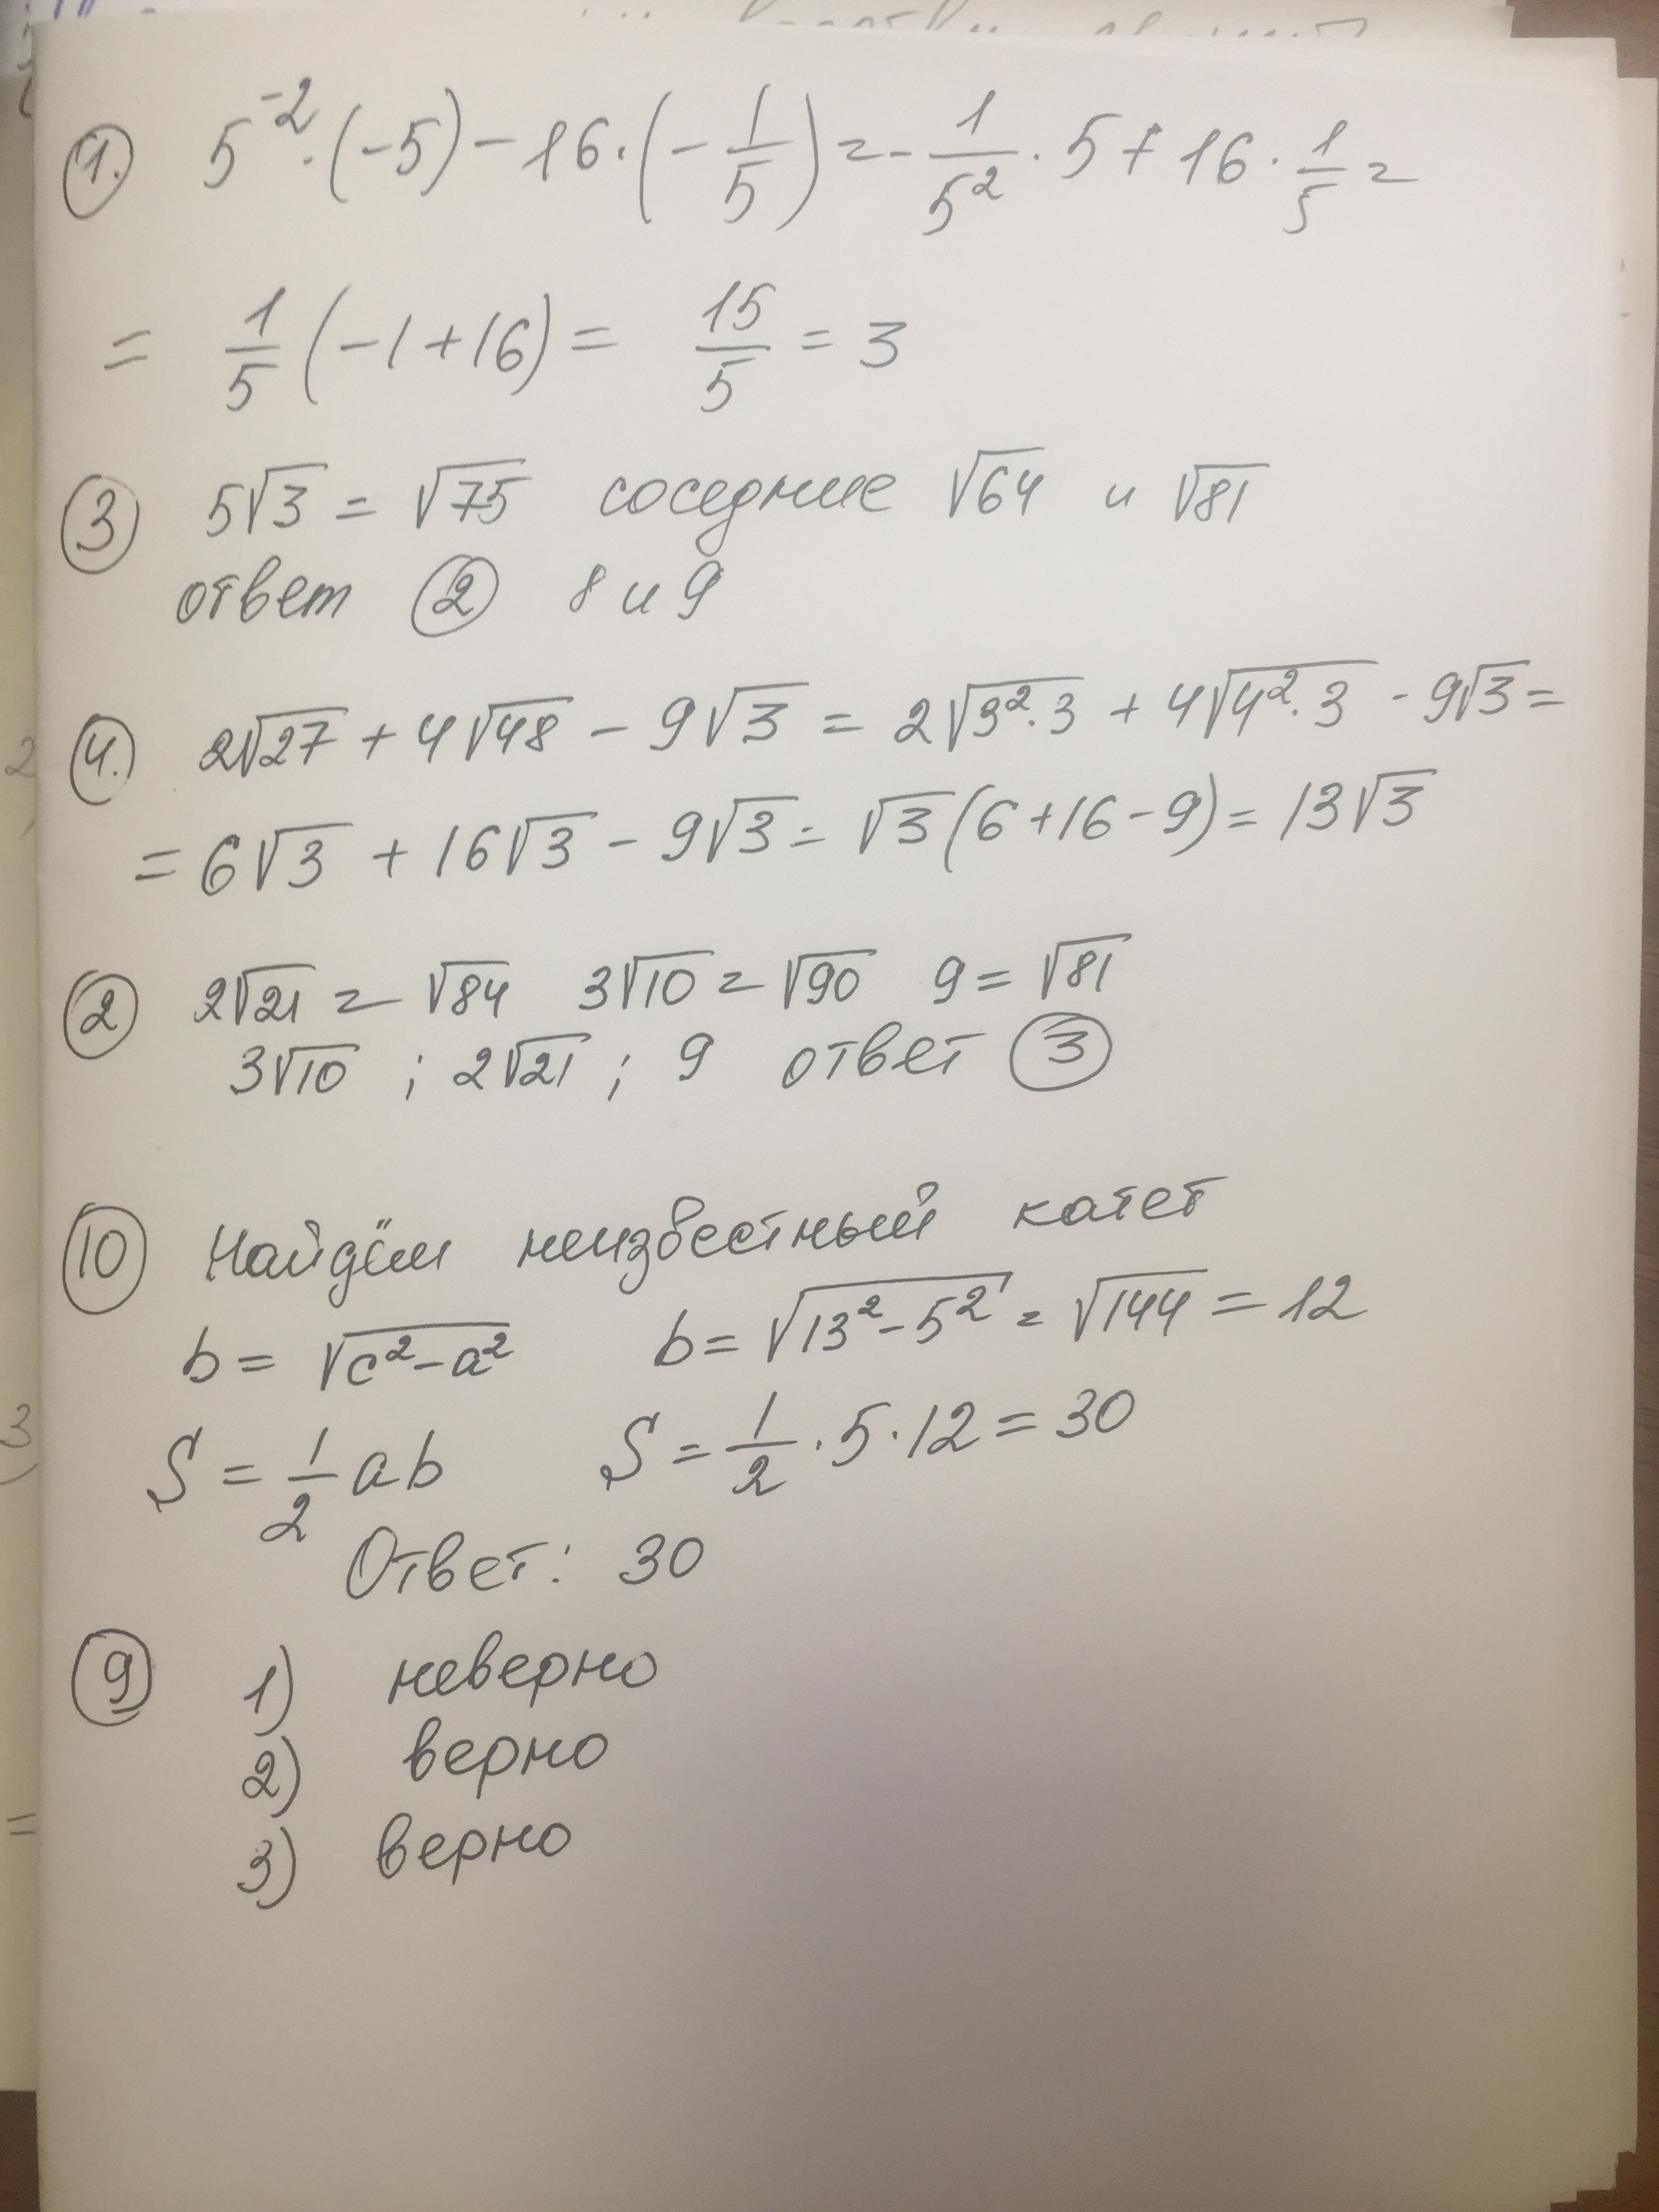 1. 5⁻² · (-5) - 16 · (- 1/5) = - 1/5² · 5 + 16 · 1/5 =
= 1/5 (-1 + 16) = 15/5 = 3
3 5√3 = √75 соседние √64 и √81
ответ 2 8 и 9
4. 2√27 + 4√48 - 9√3 = 2√3²·3 + 4√4²·3 - 9√3 =
= 6√3 + 16√3 - 9√3 = √3 (6 + 16 - 9) = 13√3
2 2√21 = √84 3√10 = √90 9 = √81
3√10 ; 2√21 ; 9 ответ 3
10 Найдём неизвестный катет
b = √c² - a² b = √13² - 5² = √144 = 12
S = 1/2 ab S = 1/2 · 5 · 12 = 30
Ответ: 30
9 1) неверно
2) верно
3) верно
2)
3)
=